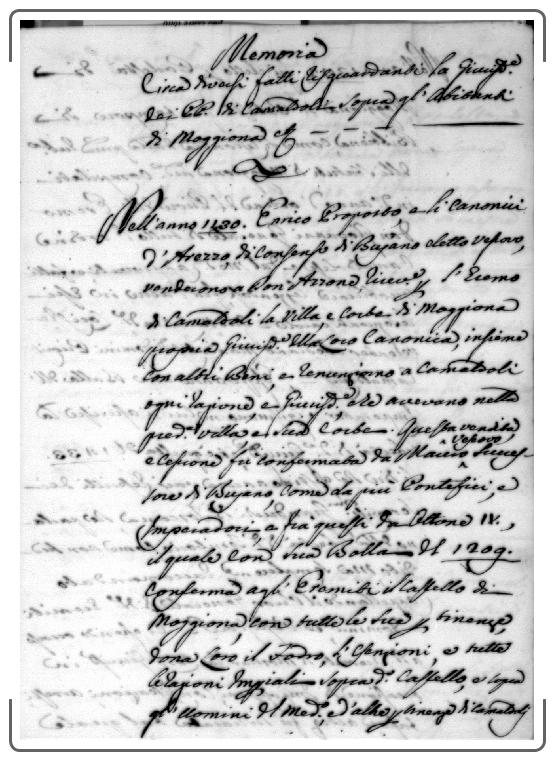 Memoria
Circa diversi fatti risguardanti la Giurisd.e
de PP. di Camaldoli sopra gl'Abitanti
di Moggiona
Nell'anno 1130. Enrico Proposto e li Canonici
d'Arezzo, di consenso di Bujano eletto Vescovo,
venderono a Don Azzone l'Eremo
di Camaldoli la Villa, e Corte di Moggiona
propria Giurisd.e della Loro Canonica, insieme
con altri Beni, e renunziono a Camaldoli
ogni ragione, e Giurisd.e che avevano nella
pred.a Villa e sua Corte. Questa vendita
e Cessione fu confermata da Mauro Vescovo, Succes
sore di Bujano, come da più Pontefici, e
Imperadori, e fra questi da Ottone IV.,
il quale con sua Bolla del 1209.
conferma agl'Eremiti il Castello di
Moggiona con tutte le sue ptinenze,
dona Loro il Fodro, l'Esenzioni, e tutte
le ragioni Impiali sopra d.o Castello, e sopra
gl'Uomini del Med.o, e d'altre ptinenze di Camaldoli